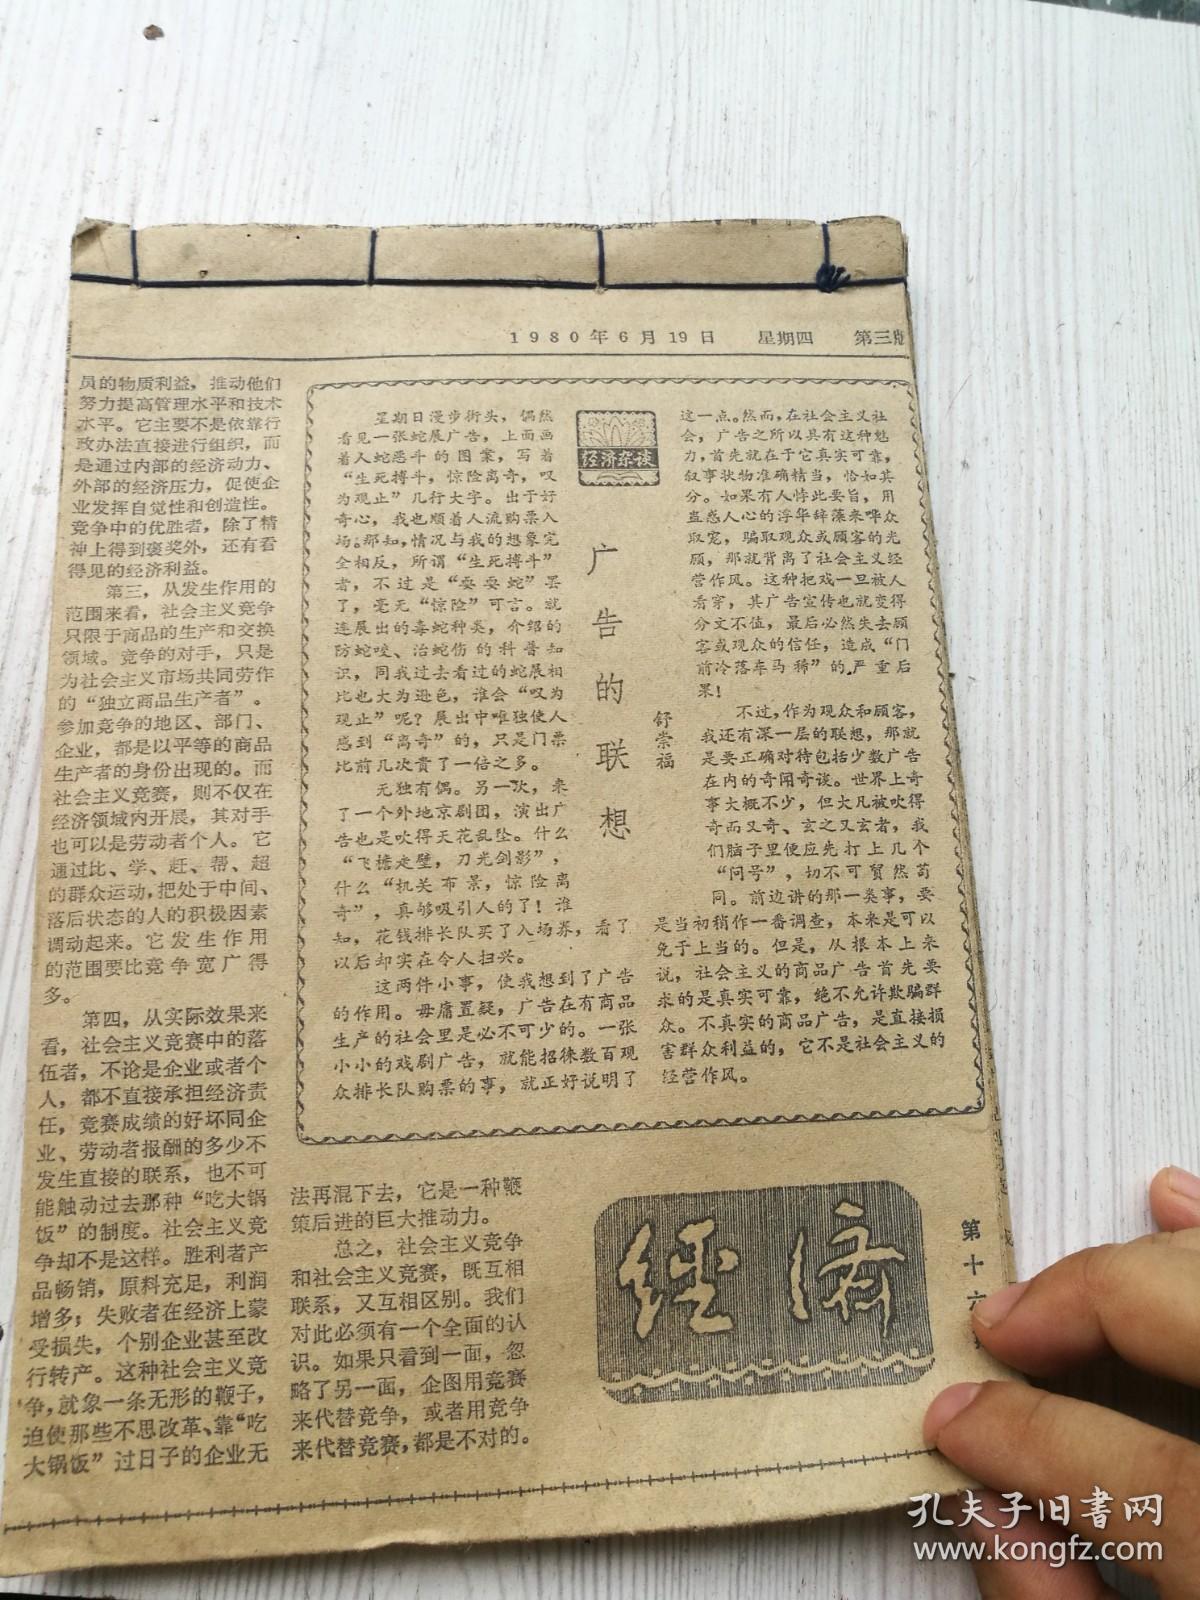 1980年6月19日 星期四 第三版
员的物质利益，推动他们
努力提高管理水平和技术
水平。它主要不是依靠行
政办法直接进行组织，而
是通过内部的经济动力、
外部的经济压力，促使企
业发挥自觉性和创造性。
竞争中的优胜者，除了精
神上得到褒奖外，还有看
得见的经济利益。
第三，从发生作用的
范围来看，社会主义竞争
只限于商品的生产和交换
领域。竞争的对手，只是
为社会主义市场共同劳作
的“独立商品生产者”。
参加竞争的地区、部门、
企业，都是以平等的商品
生产者的身份出现的。而
社会主义竞赛，则不仅在
经济领域内开展，其对手
也可以是劳动者个人。它
通过比、学、赶、帮、超
的群众运动，把处于中间、
落后状态的人的积极因素
调动起来。它发生作用
的范围要比竞争宽广得
多。
第四，从实际效果来
看，社会主义竞赛中的落
伍者，不论是企业或者个
人，都不直接承担经济责
任，竞赛成绩的好坏同企
业、劳动者报酬的多少不
发生直接的联系，也不可
能触动过去那种“吃大锅
饭”的制度。社会主义竞
争却不是这样。胜利者产
品畅销，原料充足，利润
增多；失败者在经济上蒙
受损失，个别企业甚至改
行转产。这种社会主义竞
争，就象一条无形的鞭子，
迫使那些不思改革、靠“吃
大锅饭”过日子的企业无
法再混下去，它是一种鞭
策后进的巨大推动力。
总之，社会主义竞争
和社会主义竞赛，既互相
联系，又互相区别。我们
对此必须有一个全面的认
识。如果只看到一面，忽
略了另一面，企图用竞赛
来代替竞争，或者用竞争
来代替竞赛，都是不对的。
经济杂谈
广告的联想
舒崇福
星期日漫步街头，偶然
看见一张蛇展广告，上面画
着人蛇恶斗的图案，写着
“生死搏斗，惊险离奇，叹
为观止”几行大字。出于好
奇心，我也顺着人流购票入
场。那知，情况与我的想象完
全相反，所谓“生死搏斗”
者，不过是“耍耍蛇”罢
了，毫无“惊险”可言。就
连展出的毒蛇种类，介绍的
防蛇咬、治蛇伤的科普知
识，同我过去看过的蛇展相
比也大为逊色，谁会“叹为
观止”呢？展出中唯独使人
感到“离奇”的，只是门票
比前几次贵了一倍之多。
无独有偶。另一次，来
了一个外地京剧团，演出广
告也是吹得天花乱坠。什么
“飞檐走壁，刀光剑影”，
什么“机关布景，惊险离
奇”，真够吸引人的了！谁
知，花钱排长队买了入场券，看了
以后却实在令人扫兴。
这两件小事，使我想到了广告
的作用。毋庸置疑，广告在有商品
生产的社会里是必不可少的。一张
小小的戏剧广告，就能招徕数百观
众排长队购票的事，就正好说明了
这一点。然而，在社会主义社
会，广告之所以具有这种魅
力，首先就在于它真实可靠，
叙事状物准确精当，恰如其
分。如果有人悖此要旨，用
蛊惑人心的浮华辞藻来哗众
取宠，骗取观众或顾客的光
顾，那就背离了社会主义经
营作风。这种把戏一旦被人
看穿，其广告宣传也就变得
分文不值，最后必然失去顾
客或观众的信任，造成“门
前冷落车马稀”的严重后
果！
不过，作为观众和顾客，
我还有深一层的联想，那就
是要正确对待包括少数广告
在内的奇闻奇谈。世界上奇
事大概不少，但大凡被吹得
奇而又奇、玄之又玄者，我
们脑子里便应先打上几个
“问号”，切不可贸然苟
同。前边讲的那一类事，要
是当初稍作一番调查，本来是可以
免于上当的。但是，从根本上来
说，社会主义的商品广告首先要
求的是真实可靠，绝不允许欺骗群
众。不真实的商品广告，是直接损
害群众利益的，它不是社会主义的
经营作风。
经济
第十六
孔夫子旧书网
www.kongfz.com